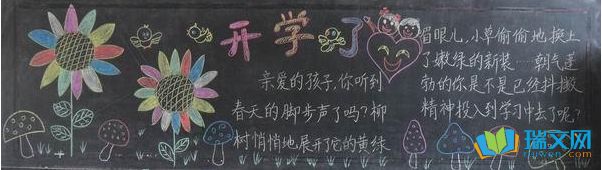 开学了
亲爱的孩子,你听到
春天的脚步声了吗?柳
树悄悄地展开它的黄绿
眉眼儿,小草偷偷地换上
了嫩绿的新装……朝气蓬
勃的你是不是已经抖擞
精神投入到学习中去了呢?
瑞文网
ruiwen.com